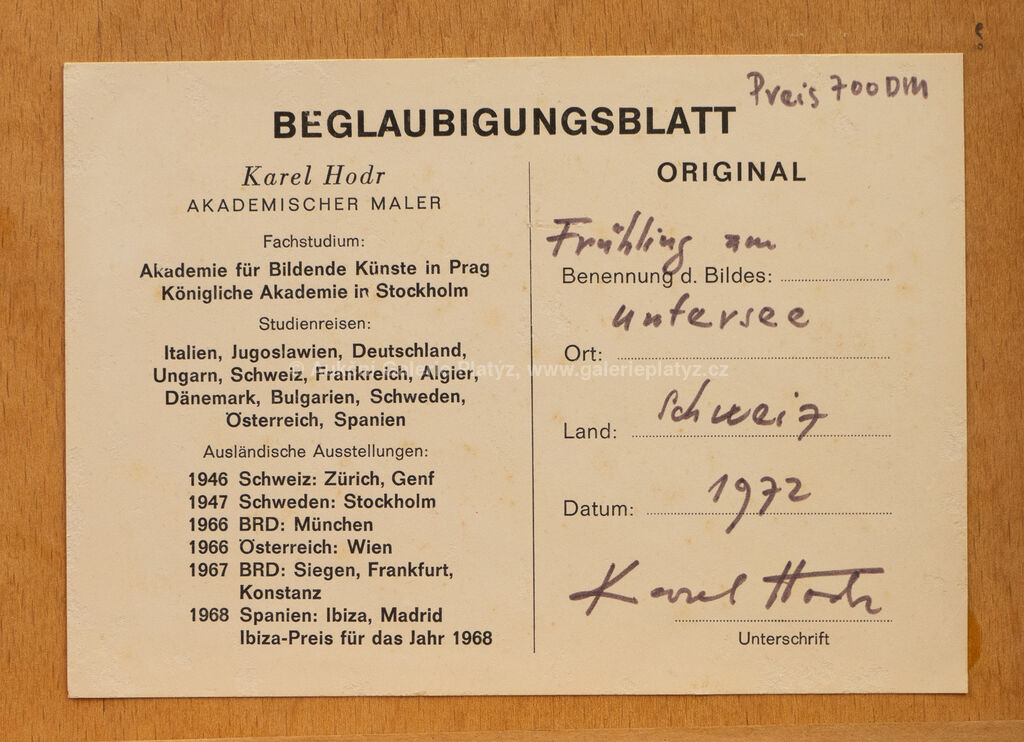 Preis 700 DM
BEGLAUBIGUNGSBLATT
Karel Hodr
AKADEMISCHER MALER
Fachstudium:
Akademie für Bildende Künste in Prag
Königliche Akademie in Stockholm
Studienreisen:
Italien, Jugoslawien, Deutschland,
Ungarn, Schweiz, Frankreich, Algier,
Dänemark, Bulgarien, Schweden,
Österreich, Spanien
Ausländische Ausstellungen:
1946 Schweiz: Zürich, Genf
1947 Schweden: Stockholm
1966 BRD: München
1966 Österreich: Wien
1967 BRD: Siegen, Frankfurt,
Konstanz
1968 Spanien: Ibiza, Madrid
Ibiza-Preis für das Jahr 1968
ORIGINAL
Frühling am
Benennung d. Bildes:
untersee
Ort:
Land: Schweiz
Datum: 1972
Karel Hodr
Unterschrift
© Aukční Galerie Platýz, www.galerieplatyz.cz